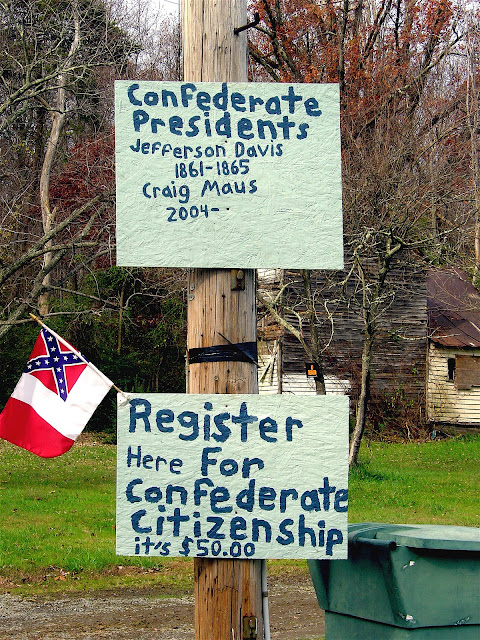 Confederate
Presidents
Jefferson Davis
1861-1865
Craig Maus
2004-
Register
Here For
Confederate
Citizenship
it's $50.00